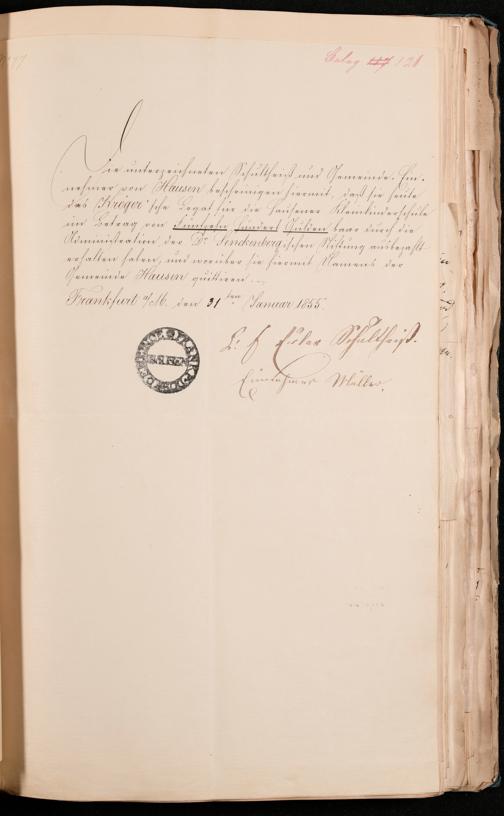 Beleg 121
Die unterzeichneten Schultheiß und Gemeinde-Ein-
nehmer von Hausen bescheinigen hiermit, daß sie heute
das Kröger'sche Legat für die Hausener Kleinkinderschule
im Betrag von fünfzehn hundert Gulden baar durch die
Administration der Dr. Senckenbergischen Stiftung ausbezahlt
erhalten haben, und worüber sie hiermit Namens der
Gemeinde Hausen quittiren.
Frankfurt a/M. den 31ten Januar 1855.
FRANKFURT
Euler Schultheiß.
Einnehmer Müller.